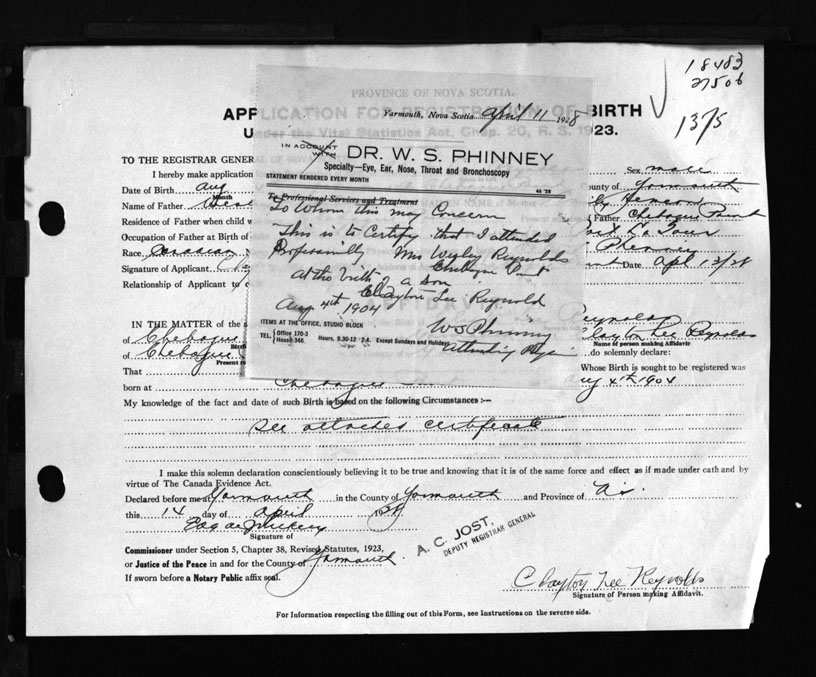 18483
27506
1375
PROVINCE OF NOVA SCOTIA.
APPLICATION FOR REGISTRATION OF BIRTH
Under the Vital Statistics Act, Chap. 20, R. S. 1923.
Yarmouth, Nova Scotia April 11 1928
IN ACCOUNT
WITH
DR. W. S. PHINNEY
Specialty—Eye, Ear, Nose, Throat and Bronchoscopy
STATEMENT RENDERED EVERY MONTH
To Professional Services and Treatment
To Whom this may Concern
This is to Certify that I attended
Professionally Mrs Wesley Reynolds
Chebogue Point
at the birth of a son
Clayton Lee Reynold
Aug 4th 1904
ITEMS AT THE OFFICE, STUDIO BLOCK
WS Phinney
TEL. Office 170-3
House 346
Hours, 9.30-12 2-4. Except Sundays and Holidays
Attending
TO THE REGISTRAR GENER
I hereby make application
Sex male
Date of Birth Aug
Month
County of Yarmouth
Name of Father
Residence of Father when child w
Father Chebogue Point
Occupation of Father at Birth of
Race
Signature of Applicant
Date Apl 13/28
Relationship of Applicant to c
IN THE MATTER of the a
of Chebogue
Clayton Lee Reynolds
Name of person making Affidavit
of Chebogue
do solemnly declare:
That
Whose Birth is sought to be registered was
born at Chebogue
4th 1904
My knowledge of the fact and date of such Birth is based on the following Circumstances :—
See attached certificate
I make this solemn declaration conscientiously believing it to be true and knowing that it is of the same force and effect as if made under oath and by
virtue of The Canada Evidence Act.
Declared before me at Yarmouth in the County of Yarmouth and Province of N.S.
this 14 day of April 1928
Signature of
A. C. JOST,
DEPUTY REGISTRAR GENERAL
Commissioner under Section 5, Chapter 38, Revised Statutes, 1923,
or Justice of the Peace in and for the County of Yarmouth
If sworn before a Notary Public affix seal.
Clayton Lee Reynolds
Signature of Person making Affidavit.
For Information respecting the filling out of this Form, see Instructions on the reverse side.